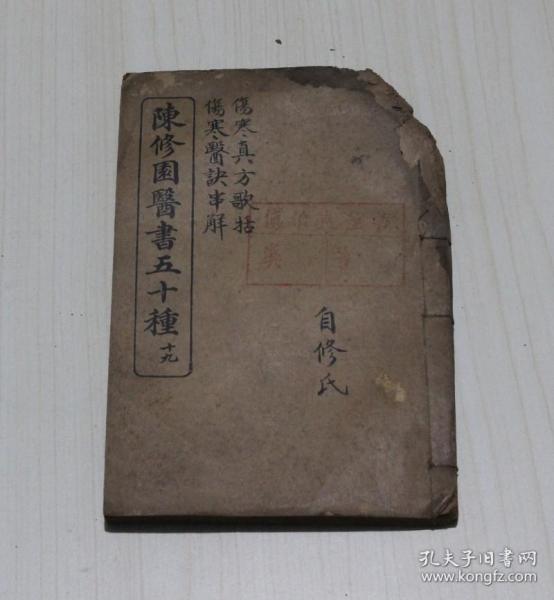 傷寒真方歌括
傷寒醫訣串解
陳修園醫書五十種 十九
自修氏
孔夫子旧书网
www.kongfz.com